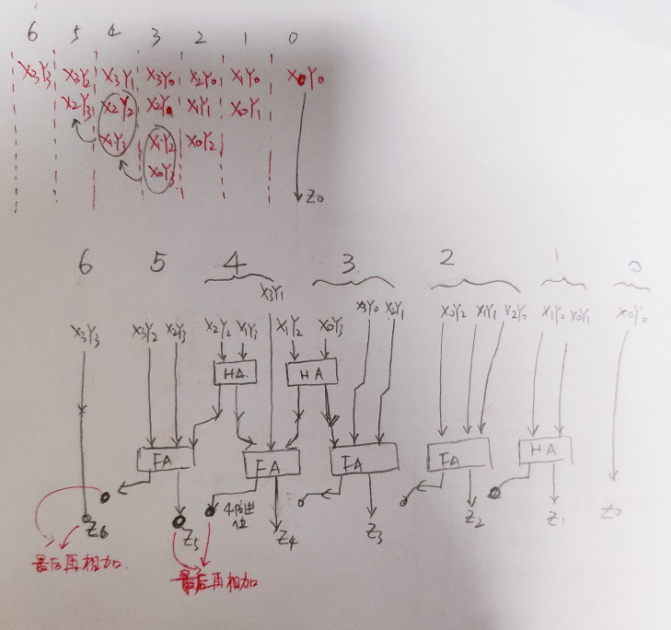 6 5 4 3 2 1 0
X3Y3 X3Y2 X3Y1 X3Y0 X2Y0 X1Y0 X0Y0
X2Y3 X2Y2 X2Y1 X1Y1 X0Y1
X1Y3 X1Y2 X0Y2
X0Y3
Z0
6 5 4 3. 2 1 0
X3Y1
X3Y3 X3Y2 X2Y3 X2Y2 X1Y3 X1Y2 X0Y3 X3Y0 X2Y1 X0Y2 X1Y1 X2Y0 X1Y0 X0Y1 X0Y0
HA. HA
FA FA FA FA HA
4的进位
Z6 Z5 Z4 Z3 Z2 Z1 Z0
最后再相加.
最后再相加